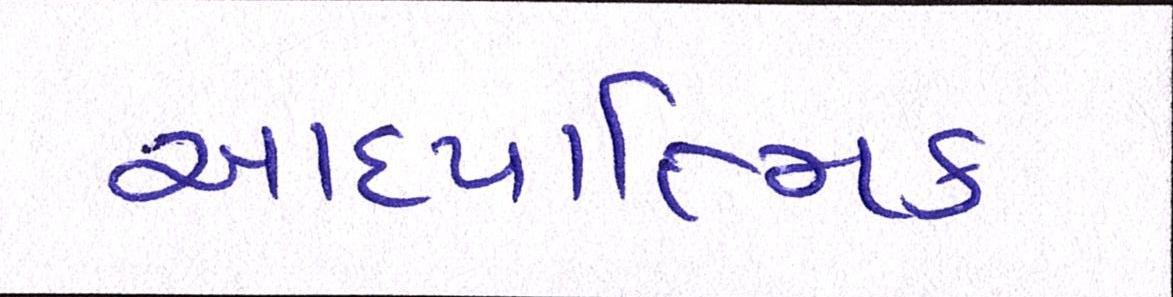 આદયાત્મિક